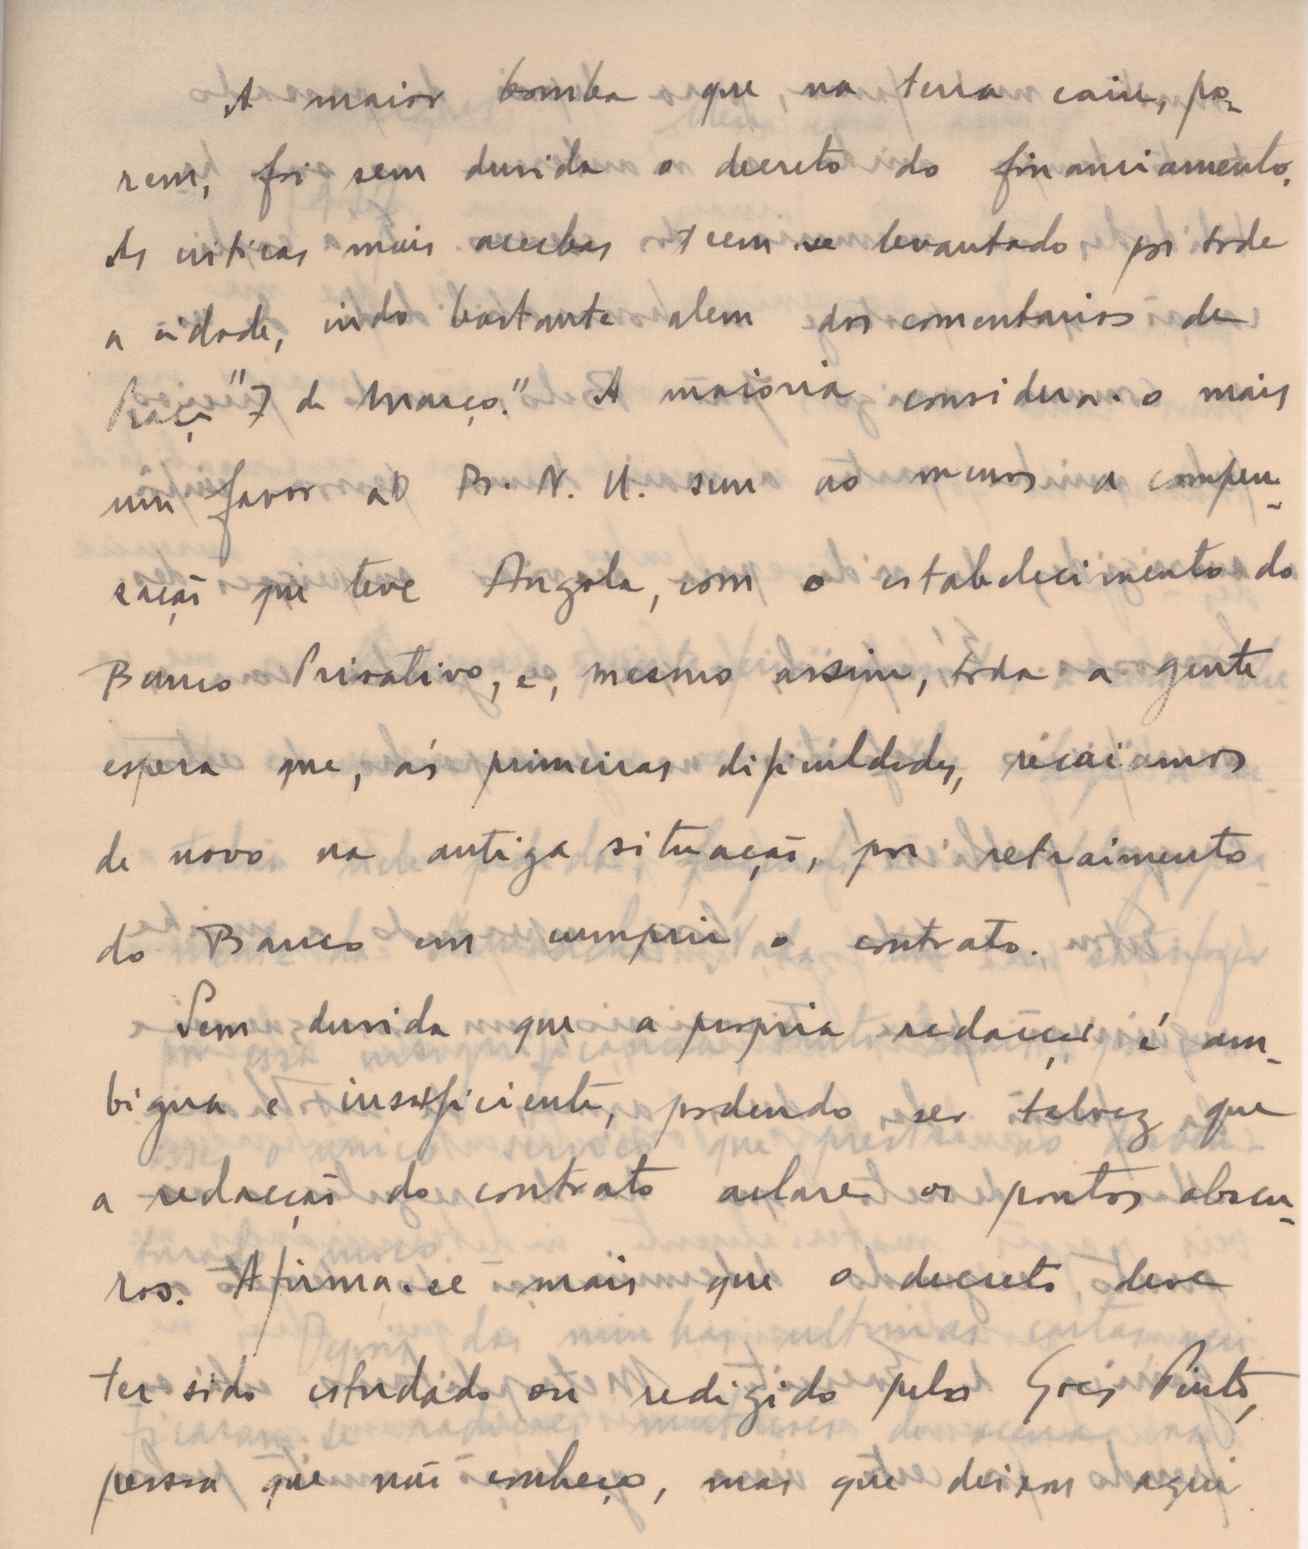 A maior bomba que na terra caiu, po-
rem, foi sem duvida o decreto do financiamento.
As criticas mais acerbas teem se levantado por toda
a cidade, indo bastante alem dos comentarios da
Praça "7 de Março." A maioria considera-o mais
um favor ao B. N. U. sem ao menos a compen-
sação que teve Angola, com o estabelecimento do
Banco Privativo, e, mesmo assim, toda a gente
espera que, ás primeiras dificuldades, recaiamos
de novo na antiga situação, por retraimento
do Banco em cumprir o contrato.
Sem duvida que a propria redacção é am-
bigua e insuficiente, podendo ser talvez que
a redacção do contrato aclare os pontos obscu-
ros. Afirma-se mais que o decreto deve
ter sido estudado ou redigido pelo Goes Pinto,
pessoa que não conheço, mas que deixou aqui